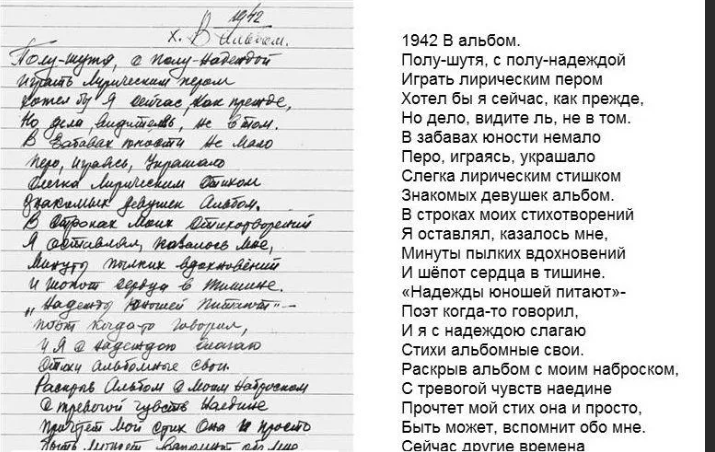 1942
х. В Альбом.
Полу-шутя, с полу-надеждой
играть лирическим пером
хотел бы я сейчас, как прежде,
Но дела видитель, не в том.
В забавах юности не мало
перо, играясь, украшало
слегка лирическим стихом
знакомых девушек Альбом.
В строках моих стихотворений
Я оставлял, казалось мне,
Минуты пылких вдохновений
и шопот сердца в тишине.
„Надежды юношей питают" –
поэт когда-то говорил,
и я с надеждою слагаю
стихи альбомные свои.
Раскрыв Альбом с моим наброском
с тревогой чувств наедине
прочтет мой стих она и просто
быть может вспомнит обо мне
1942 В альбом.
Полу-шутя, с полу-надеждой
Играть лирическим пером
Хотел бы я сейчас, как прежде,
Но дело, видите ль, не в том.
В забавах юности немало
Перо, играясь, украшало
Слегка лирическим стишком
Знакомых девушек альбом.
В строках моих стихотворений
Я оставлял, казалось мне,
Минуты пылких вдохновений
И шёпот сердца в тишине.
«Надежды юношей питают»-
Поэт когда-то говорил,
И я с надеждою слагаю
Стихи альбомные свои.
Раскрыв альбом с моим наброском,
С тревогой чувств наедине
Прочтет мой стих она и просто,
Быть может, вспомнит обо мне.
Сейчас другие времена